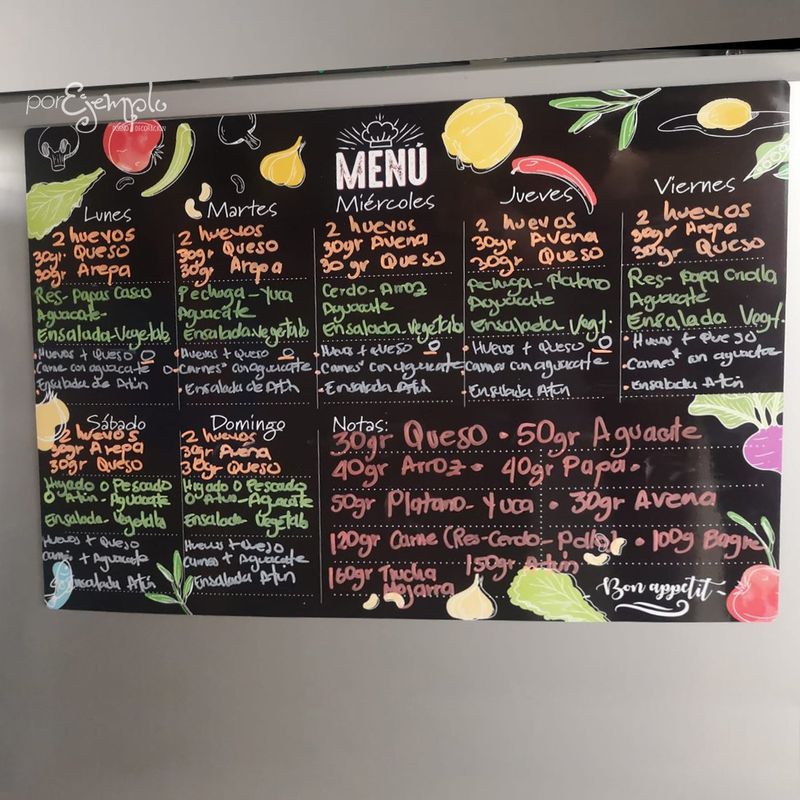 porEjemplo
MENÚ
Lunes
2 huevos
30gr Queso
30gr Arepa
Res-Papas Casco
Aguacate-
Ensalada-Vegetab
Huevos + Queso O
Carne con aguacate O
Ensalada de Atún
Martes
2 huevos
30gr Queso
30gr Arepa
Pechuga-Yuca
Aguacate
Ensalada Vegetab
Huevos + Queso O
Carnes con aguacate
Ensalada de Atún
Miércoles
2 huevos
30gr Avena
30gr Queso
Cerdo-Arroz
Aguacate
Ensalada Vegetab
Huevos + Queso O
Carnes con aguacate
Ensalada Atún
Jueves
2 huevos
30gr Avena
30gr Queso
Pechuga-Platano
Aguacate
Ensalada Vegt.
Huevos + Queso O
Carnes con aguacate
Ensalada Atún
Viernes
2 huevos
30gr Arepa
30gr Queso
Res-Papa Criolla
Aguacate
Ensalada Vegt.
Huevos + Queso
Carnes con aguacate
Ensalada Atún
Sábado
2 huevos
30gr Arepa
30gr Queso
Higado O Pescado
O Atún-Aguacate
Ensalada-Vegetab
Huevos + Queso
Carnes + Aguacate
Ensalada Atún
Domingo
2 huevos
30gr Avena
30gr Queso
Higado O Pescado
O Atun-Aguacate
Ensalada Vegetab
Huevos + Queso
Carnes + Aguacate
Ensalada Atún
Notas:
30gr Queso • 50gr Aguacate
40gr Arroz • 40gr Papa •
50gr Platano-Yuca • 30gr Avena
120gr Carne (Res-Cerdo-Pollo) • 100g Bagre
160gr Trucha 150gr Atún
Mojarra
Bon appetit